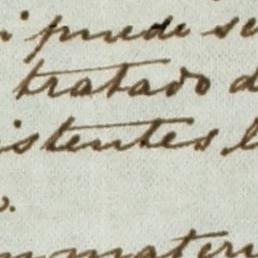 i puede se
tratado d
istentes l
o.
nmateri